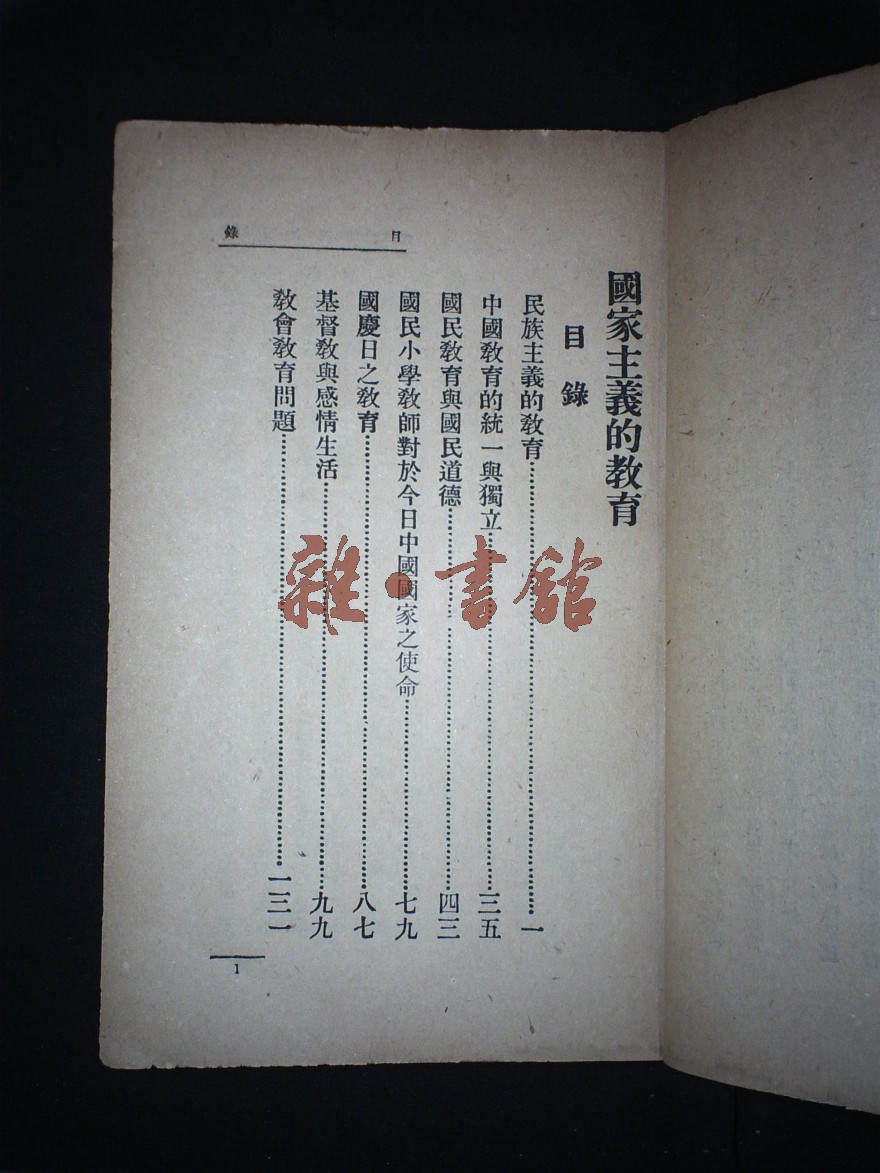 國家主義的教育
目錄
民族主義的教育……一
中國教育的統一與獨立……三五
國民教育與國民道德……四三
國民小學教師對於今日中國國家之使命……七九
國慶日之教育……八七
基督教與感情生活……九九
教會教育問題……一三一
目錄
1
雜·書館